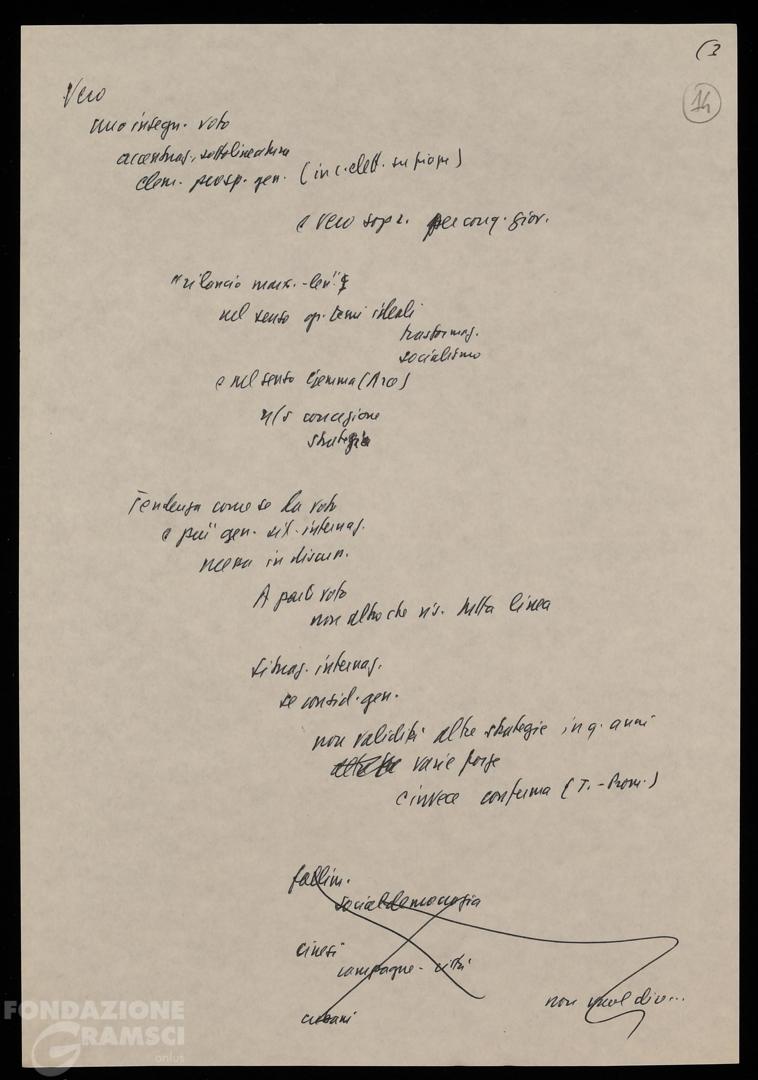 (3
14
Vero
uno insegn. voto
accentuaz., sottolineatura
elem. prosp. gen. (in c. elett.
e vero sopr. per conq. giov.
"rilancio marx.-len."
nel senso gr. temi ideali
trasformaz.
socialismo
e nel senso Gemma (Arco)
n/s concezione
strategia
Tendenza come se da voto
e più gen. sit. internaz.
messa in discus.
A parte voto
non altro che ris. tutta linea
situaz. internaz.
se consid. gen.
non validità altre strategie in q. anni
varie forze
e invece conferma (T.-Prom.)
fallim.
socialdemocrazia
cinesi
campagne - città
cubani
non vuol dire...
FONDAZIONE
GRAMSCI
onlus